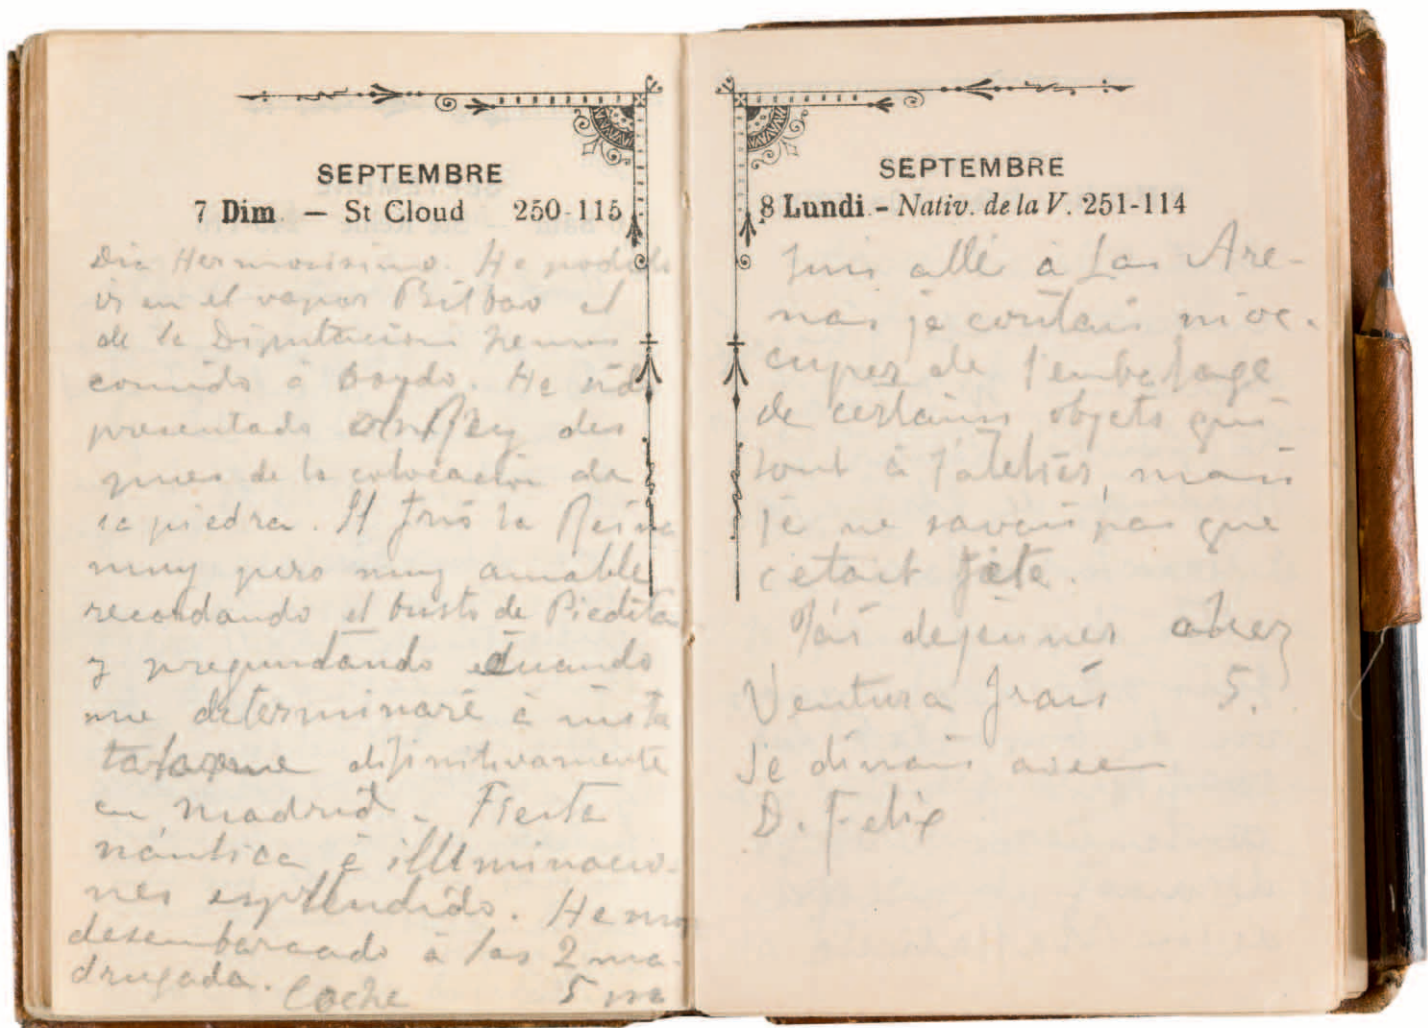 SEPTEMBRE
7 Dim. — St Cloud 250-115
Dia Hermosisimo. He podido
ir en el vapor Bilbao el
de la Diputacion hemos
comido à bordo. He sido
presentado al Rey des
pues de la colocación de
la piedra. El y la Reina
muy pero muy amable
recordando el busto de Piedita
y preguntando cuando
me determinaré à insta
larme difinitivamente
en Madrid. Fiesta
náutica é illuminacio-
nes esplendido. Hemos
desembarcado à las 2 ma-
drugada. Coche 5
SEPTEMBRE
8 Lundi - Nativ. de la V. 251-114
suis allé à Las Are-
nas je contais m'oc-
cuper de l'embalage
de certains objets qui
sont à l'atelier, mais
je ne savais pas que
c'etait fête.
J'ais dejeuner chez
Ventura frais 5.
Je dinais avec
D. Felix